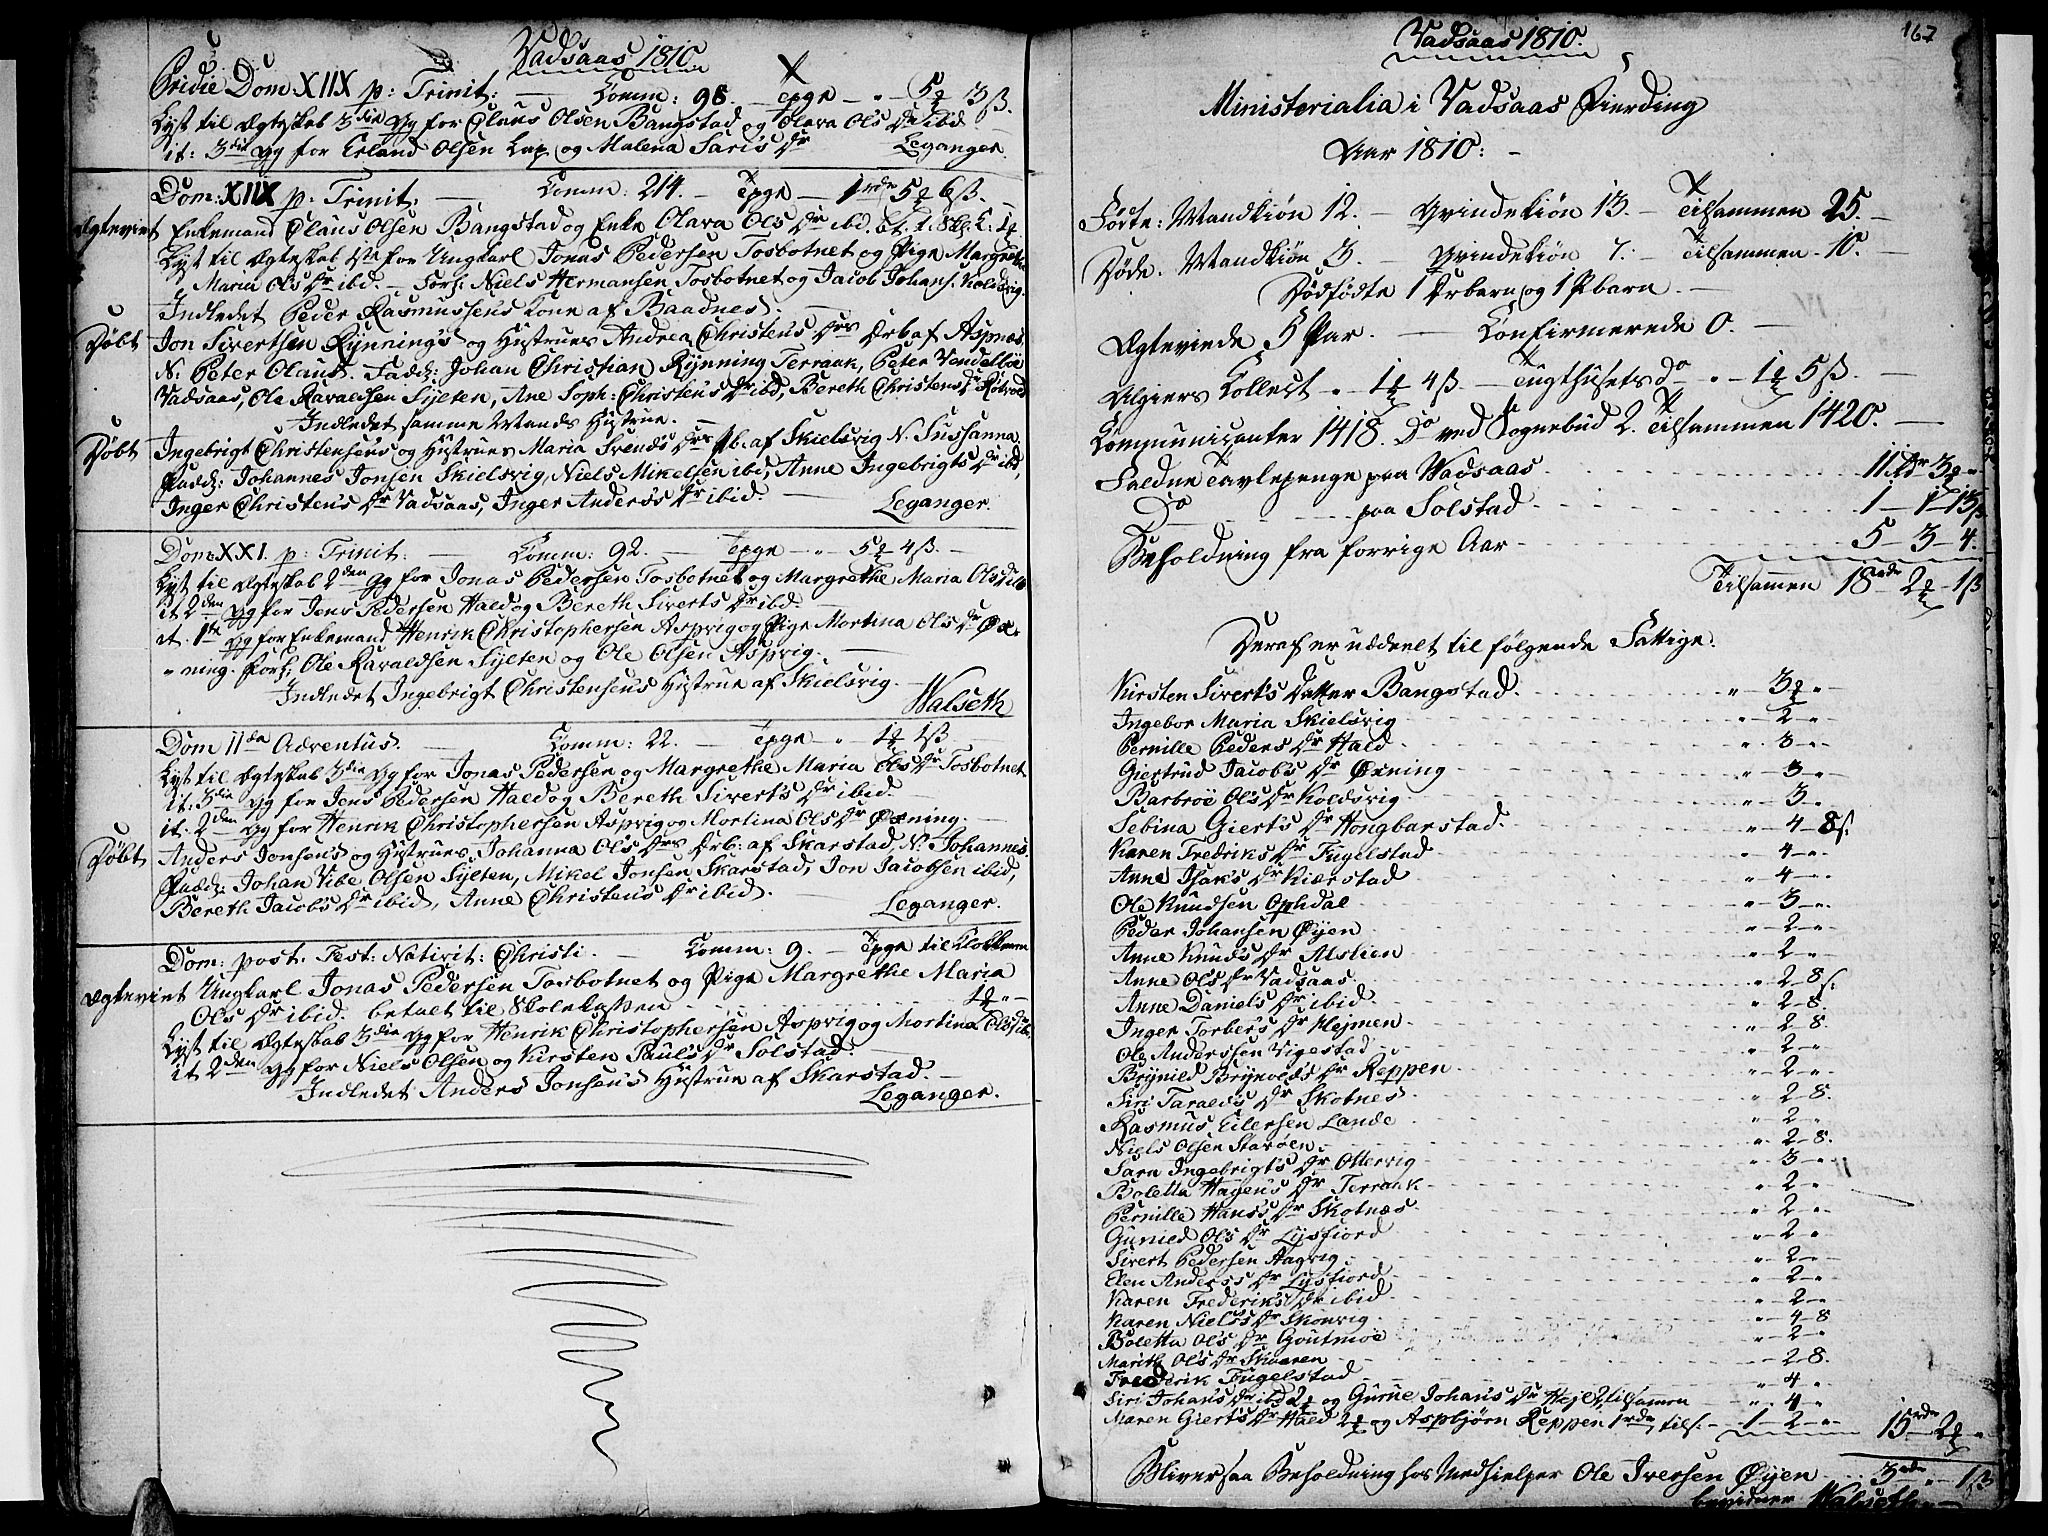 Vadsaas 1810
Pridie Dom XIIX p: Trinit: — Comm: 98. — Tpge — " — 5½ 13ß.
Lyst til Ægteskab 3die Gg for Olaus Olsen Bangstad og Olava Ols Dr ibid
it: 3die Gg for Erland Olsen Lap og Malena Saris Dr Leganger.
Dom: XIIX p: Trinit: — Comm: 214. — Tpge — 1rdr 5½ 6ß.
Ægteviet Enkemand Olaus Olsen Bangstad og Enke Olava Ols Dr ibd.
Lyst til Ægteskab 1ste for Ungkarl Jonas Pedersen Tosbotnet og Pige Margrethe
Maria Ols Dr ibd. — Forl: Niels Hermansen Tosbotnet og Jacob Johans. Koldsvig.
Indledet Peder Rasmussens Kone af Baadnes.
Døbt Jon Sivertsen Rynnings og Hustrues Andrea Christens Drs Drb af Aspnæs
N: Peter Olaus. Fadd: Johan Christian Rynning Terraak, Peter Vendelboe
Vadsaas, Ole Havaldsen Sylten, Ane Soph: Christens Dr ibd, Bereth Christens Dr
Indledet samme Mands Hustrue.
Døbt Ingebrigt Christensens og Hustrues Maria Svends Drs Pb. af Skielsvig N. Susanna.
Fadd: Johannes Jonsen Skielsvig, Niels Mikelsen ibd, Anne Ingebrigts Dr ibd,
Inger Christens Dr Vadsaas, Inger Anders's Dr ibid. — Leganger.
Dom: XXI. p: Trinit: — Comm: 92. — Tpge — " 5½ 4ß. —
Lyst til Ægteskab 2den Gg for Jonas Pedersen Tosbotnet og Margrethe Maria Ols Dr ibd
it 2den Gg for Jens Pedersen Hald og Bereth Siverts Dr ibd.
it. 1ste Gg for Enkemand Henrik Christophersen Aspvig og Pige Martina Ols Dr Øx-
"ning. Forl: Ole Havaldsen Sylten og Ole Olsen Aspvig.
Indledet Ingebrigt Christensens Hustrue af Skielsvig. —
Walseth
Dom IIda Adventus. — Comm: 22. — Tpge — " 1½ 1ß
Lyst til Ægteskab 3die Gg for Jonas Pedersen og Margrethe Maria Ols Dr Tosbotnet
it: 3die Gg for Jens Pedersen Hald og Bereth Sivert's Dr ibid.
it. 2den Gg for Henrik Christophersen Aspvig og Martina Ols Dr Øxning. —
Døbt Anders Jonsens og Hustrues Johanna Ols Drs Drb: af Skarstad, N: Johannes.
Fadd: Johan Vibe Olsen Sylten, Mikel Jonsen Skarstad, Jon Jacobsen ibid,
Bereth Jacob's Dr ibid, Anne Christens Dr ibid. — Leganger.
Dom: post. Fest: Nativit: Christi. — Comm: 9. — Tpge til Klokkeren
Ægteviet Ungkarl Jonas Pedersen Tosbotnet og Pige Margrethe Maria
Ols Dr ibid. betalt til Skolekassen — 1½ " —
Lyst til Ægteskab 3die Gg for Henrik Christophersen Aspvig og Martina Ols Dr ib.
it 2den Gg for Niels Olsen og Kirsten Pauls Dr Solstad. —
Indledet Anders Jonsens Hustrue af Skarstad. —
Leganger.
167
Vadsaas 1810.
Ministerialia i Vadsaas Fierding
Aar 1810: —
Fødte: Mandkiøn 12. — Qvindekiøn 13. — Tilsammen 25. —
Døde. Mandkiøn 3. — Qvindekiøn 7. — Tilsammen — 10. —
Dødfødte 1 Drbarn og 1 Pbarn. —
Ægteviede 5 Par. — Confirmerede 0. —
Algiers Collect " — 1½ 4ß. — Tugthusets Do " — 1½ 5ß. —
Communicanter 1418. Do ved Sognebud 2. Tilsammen 1420. —
Faldne Tavlepenge paa Vadsaas 11rdr 3½ "
Do paa Solstad 1 — 1 — 13ß
Beholdning fra forrige Aar 5 — 3 — 4.
Tilsamen 18rdr 2½ — 1ß
Deraf er uddeelt til følgende Fattige.
Kirsten Sivert's Datter Bangstad. " 3½ "
Ingebor Maria Skielsvig " — 2 — "
Pernille Peders Dr Hald " — 3 — "
Giertrud Jacob's Dr Øxning " — 3 — "
Barbroe Ols Dr Koldsvig " — 3 — "
Sebina Giert's Dr Hongbarstad. " — 4 — 8ß.
Karen Fredriks Dr Fugelstad " — 4 — "
Anne Isaks Dr Kiærstad " — 4 — "
Ole Knudsen Ophdal " — 3 — "
Peder Johansen Øyen " — 2 — "
Anne Knuds Dr Alslien " — 2 — "
Anne Ols Dr Vadsaas " — 2 — 8ß.
Anne Daniels Dr ibid " 2 — 8.
Inger Torber's Dr Hejmen " 2 8.
Ole Anderssen Vigestad " — 2 — "
Brynild Brynolds Dr Reppen " — 2 — "
Siri Taralds Dr Skotnes " 2 — 8.
Rasmus Eilersen Lande " 2 — "
Niels Olsen Starøen " — 2 — 8.
Sara Ingebrigts Dr Ottervig " — 3 — "
Boletta Hagens Dr Terraak " — 2 — "
Pernille Hans's Dr Skotnæs " — 2 — "
Gunild Ols Dr Lysfiord " — 2 — "
Sivert Pedersen Aagvig " — 2 — "
Elen Anders's Dr Lysfiord " — 2 — "
Karen Frederiks Dr ibid " — 2 — "
Karen Niels's Dr Skonvig " — 4 — 8
Boletta Ols Dr Goutmoe " — 2 — "
Marith Ols Dr Skaaren — 2 — 8.
Frederik Fugelstad " — 4 — "
Siri Johans Dr ibd 2½ og Gurue Johans Dr Hejl 2, tilsamen " — 4 — "
Maren Giert's Dr Hald 2½ og Aspbjørn Reppen 1rdr, tils: — 1 — 2 — " 15rdr 2½ "
Bliver saa Beholdning hos Medhielper Ole Iversen Øyen 3rdr " — 1ß
bevidner Walseth